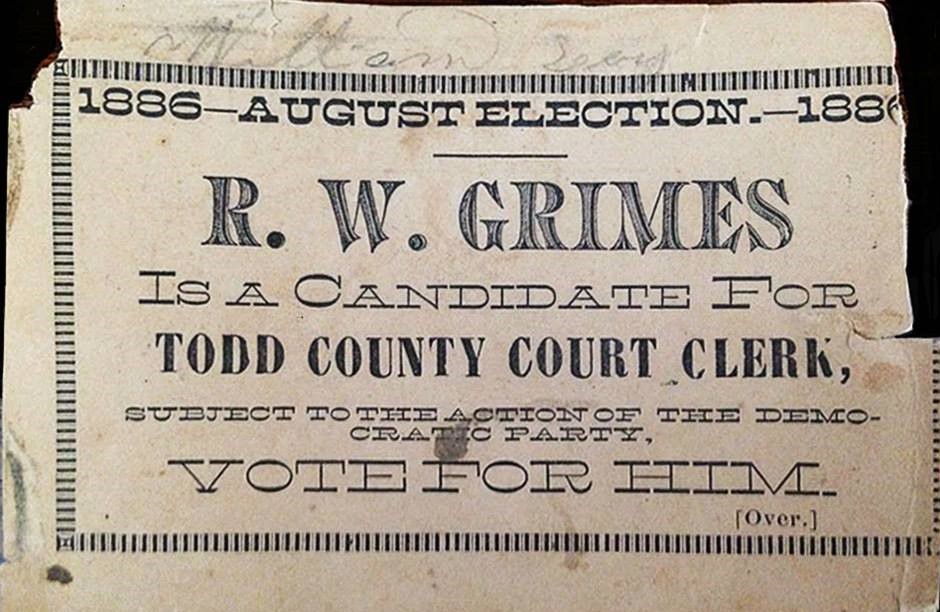 William
1886—AUGUST ELECTION.—1886
R. W. GRIMES
IS A CANDIDATE FOR
TODD COUNTY COURT CLERK,
SUBJECT TO THE ACTION OF THE DEMO-
CRATIC PARTY,
VOTE FOR HIM.
[Over.]